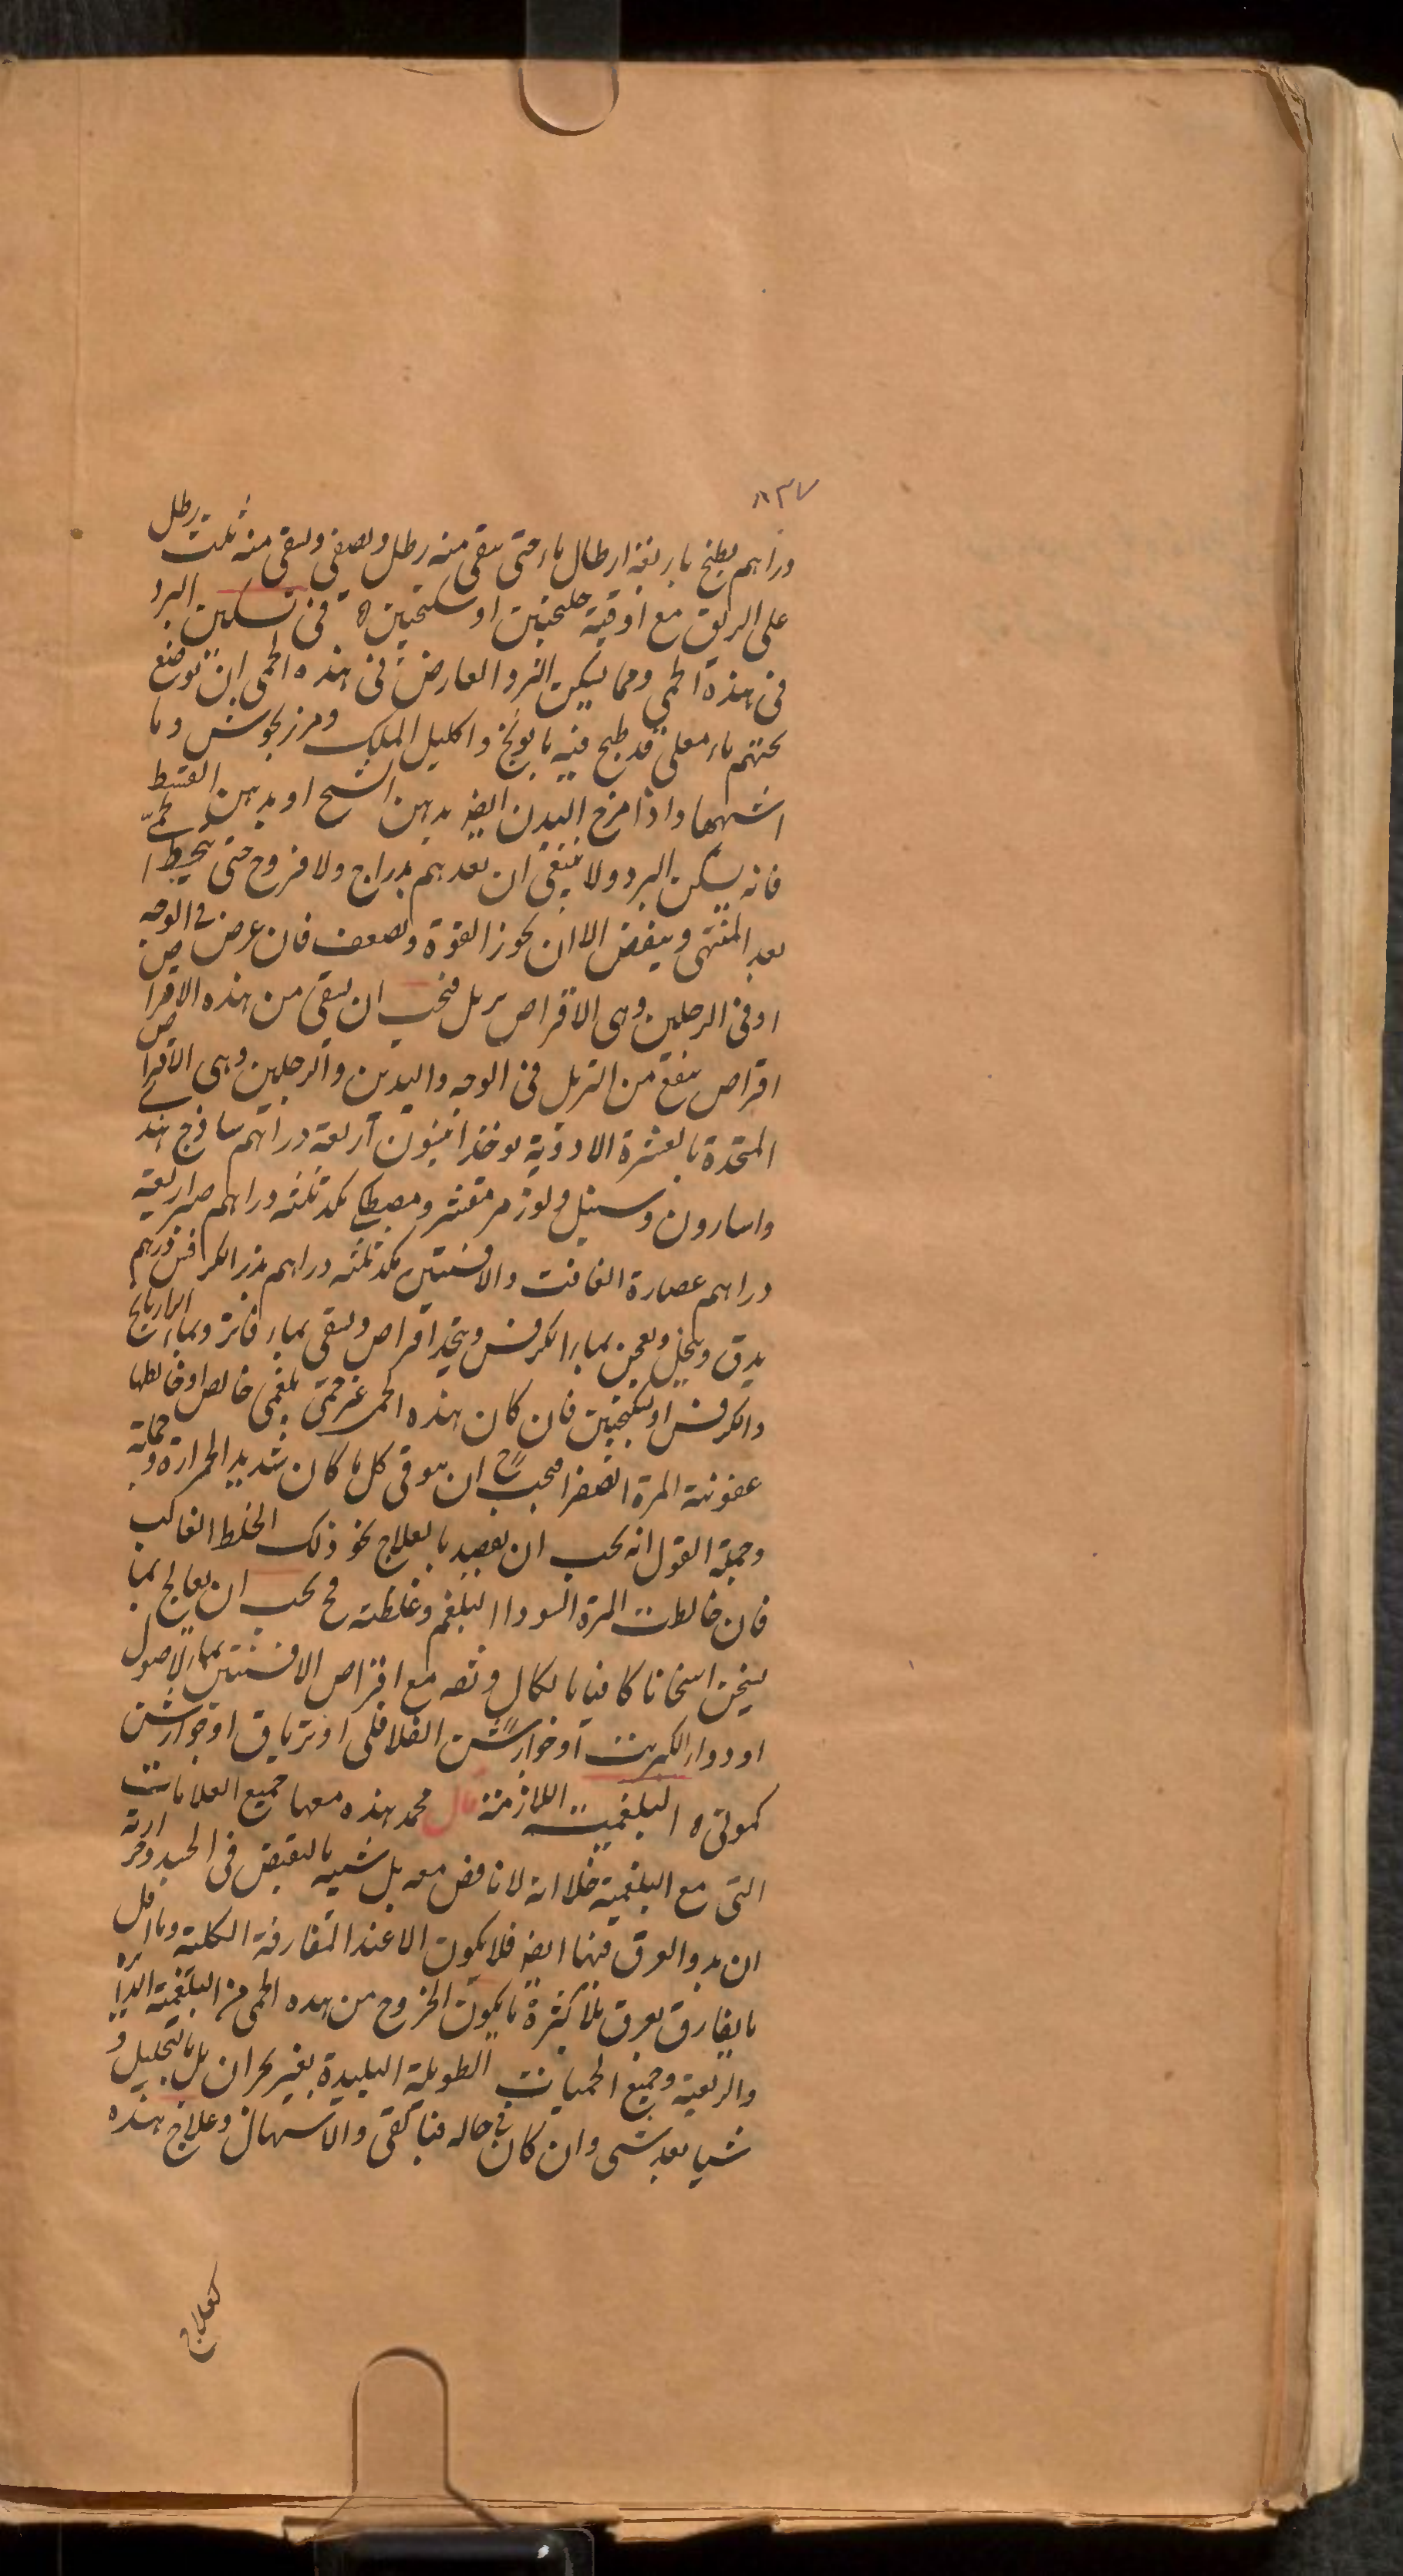 ٨٣٧
دراهم يطبخ باربعة ارطال ماء حتى يبقى منه رطل ويصفى ويسقى منه ثلث رطل
على الريق مع اوقية جلنجبين او سكنجبين ه فى تسكين البرد
فى هذه الحمى ومما يسكن البرد العارض فى هذه الحمى ان توضع
تحتهم ماء مغلى قد طبخ فيه بابونج واكليل الملك ومرزنجوش وما
اشبهها واذا مرخ البدن ايضا بدهن الشبح او بدهن القسط
فانه يسكن البرد ولا ينبغى ان تغديهم بدراج ولا فروج حتى تنحط الحمى
بعد المنتهى وينفض الا ان تخور القوة وتضعف فان عرض فى الوجه
او فى الرجلين وهى الاقراص تربل فيجب ان يسقى من هذه الاقراص
اقراص ينفع من التربل فى الوجه واليدين والرجلين وهى الاقراص
المتخذة بالعشرة الادوية يوخذ انيسون اربعة دراهم ساذج هندى
واسارون وسنبل ولوز مر مقشر ومصطكى مكد ثلثه دراهم صبر اربعة
دراهم عصارة الغافت والافسنتين مكد ثلثه دراهم بزر الكرافس درهم
يدق وينخل ويعجن بماء الكرفس ويتخذ اقراص ويسقى بماء فاتر وبماء الرازيانج
والكرفس او سكنجبين فان كان هذه الحمى عن حمى بلغمى خالص او خالطها
عفونة المرة الصفرا فيجب ح ان يتوقى كل ما كان شديد الحرارة وحماية
وجملة القول انه يجب ان يقصد بالعلاج نحو ذلك الخلط الغالب
فان خالطت المرة السودا البلغم وغلظته فح يجب ان يعالج بما
يسخن اسخانا كافيا بالكمال وتصه مع اقراص الافسنتين بماء الاصول
او دواء الكبريت او جوارشن الفلافلى او ترياق او جوارشن
كمونى ه البلغمية اللازمة قال محمد هذه معها جميع العلامات
التى مع البلغمية خلا انه لا نافض معه بل شبيه بالتقبض فى الجلد وحرارته
ان بد والعرق فيها ايضا فلا يكون الا عند المفارقة الكلية وما اقل
ما يفارق بعرق بلا كثرة ما يكون الخروج من هذه الحمى من البلغمية الدايرة
والربعية وجميع الحميات الطويلة البليدة بغير بحران بل بالتحليل و
شيا بعد شى وان كان فى حاله فبالقى والاسهال وعلاج هذه
كعلاج